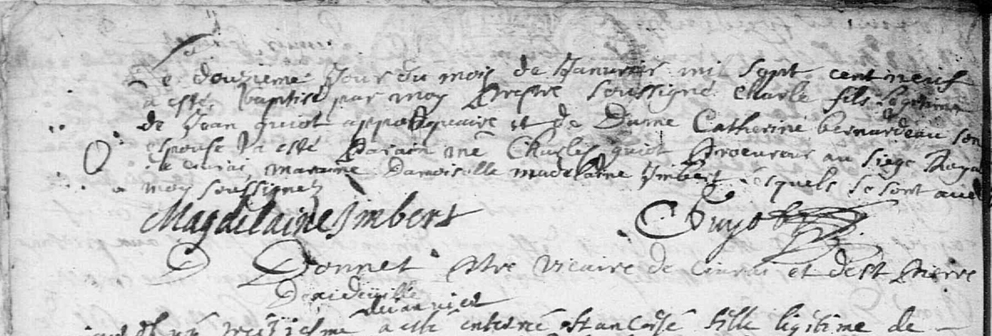 Le douzieme Jour du mois de Janvier mil sept cent neuf
a esté baptisé par moy prestre soussigné Charle fils legitime
de Jean guiot appotiquaire et de Dame Catherine bernardeau son
espouse a esté parain me Charles guiot procureur au siege Royal
de civrai, maraine Damoiselle madelaine Ymbert lesquels se sont avec
moy soussignez
Magdelaine Jmbert Cguyot
Donnet ptre vicaire de civrai et de st pierre
a esté enterré francoise fille legitime de